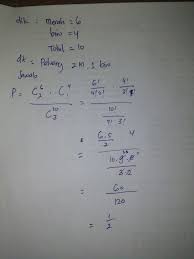 dik : merah = 6
biru = 4
Total = 10
dit : Peluang 2M, 1 biru
Jawab
P = C₂⁶ . C₁⁴ / C₃¹⁰ = 6!/4! 2! . 4!/3! / 10!/7! 3!
= 6.5/2 . 4 / 10.9.8/3.2
= 60/120
= 1/2